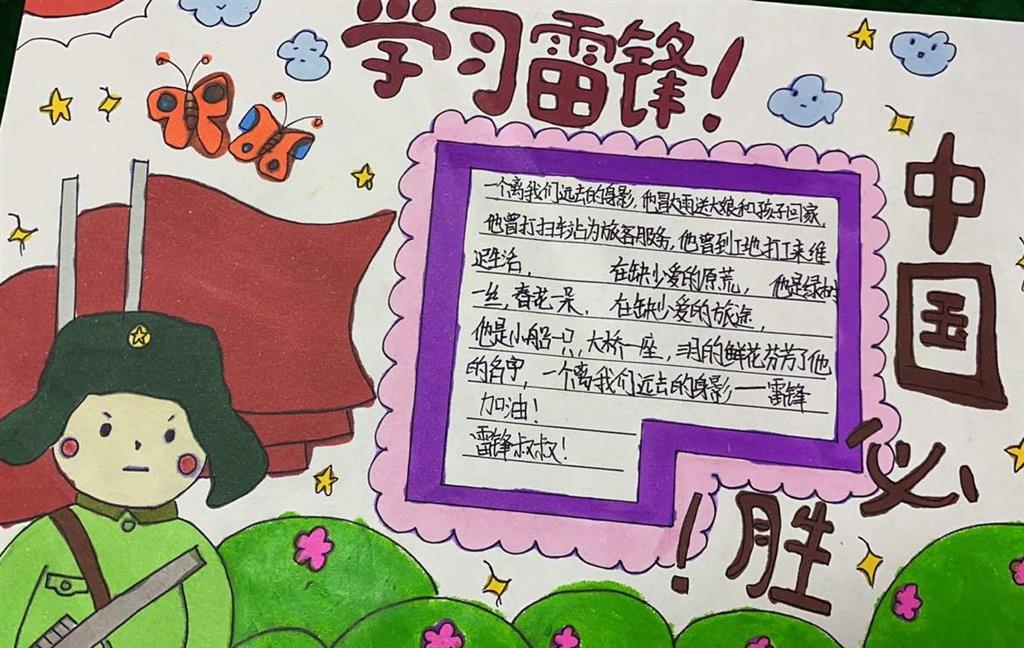 学习雷锋！
一个离我们远去的身影，他冒大雨送大娘和孩子回家
他曾打扫车站为旅客服务，他曾到工地打工来维
迟生活， 在缺少爱的原荒， 他是绿树
一丝，春花一朵， 在缺少爱的旅途，
他是小船一只，大桥一座，三月的鲜花芬芳了他
的名字，一个离我们远去的身影——雷锋
加油！
雷锋叔叔！
中国必胜！